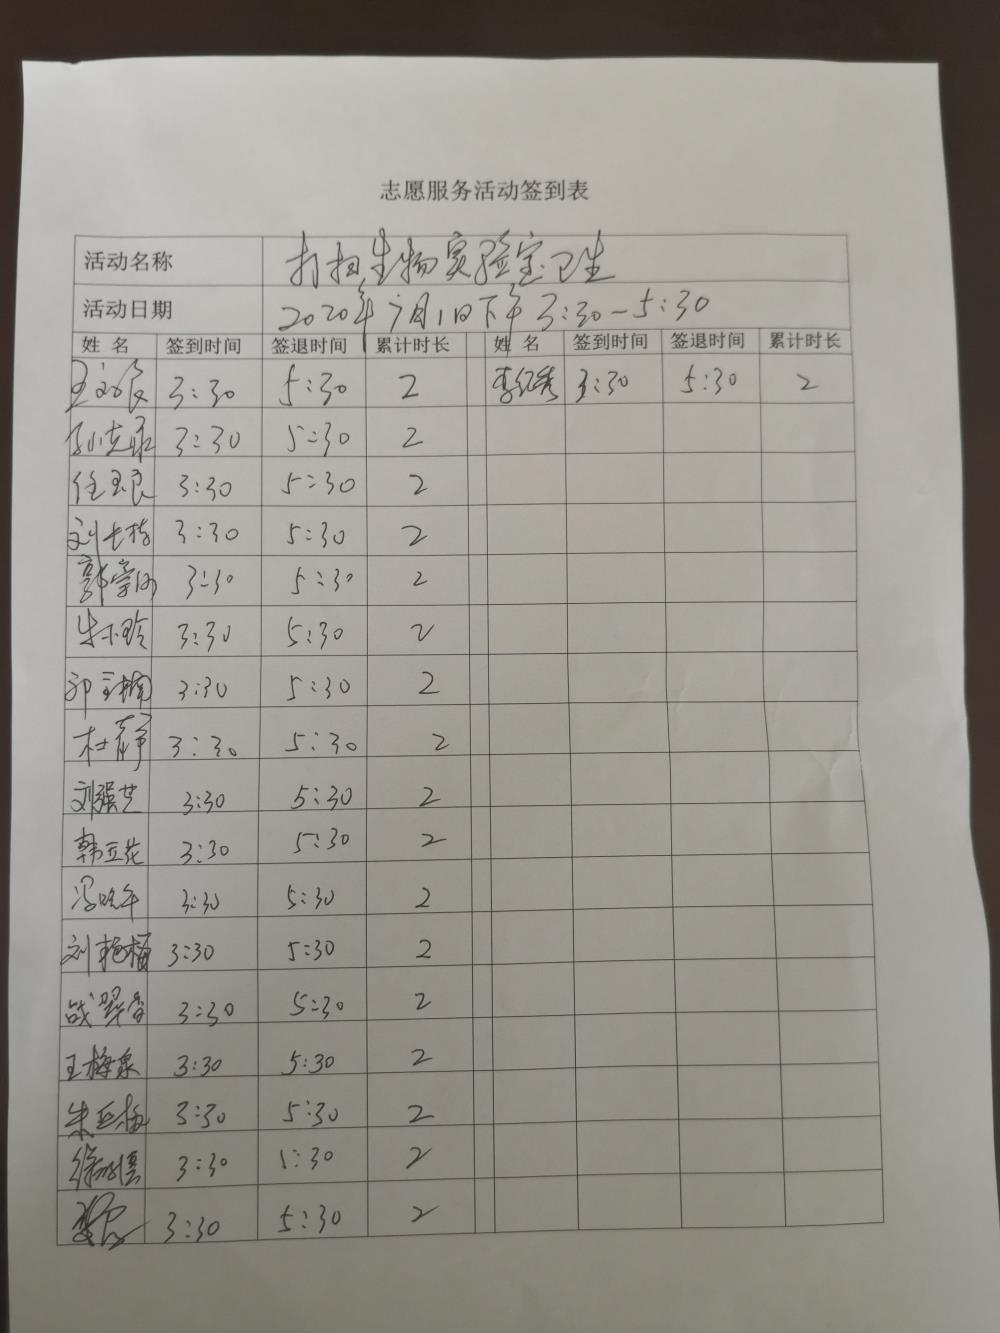 志愿服务活动签到表
活动名称 打扫生物实验室卫生
活动日期 2020年7月1日下午3:30-5:30
姓名 签到时间 签退时间 累计时长 姓名 签到时间 签退时间 累计时长
3:30 5:30 2 李纪秀 3:30 5:30 2
3:30 5:30 2
任玉良 3:30 5:30 2
刘长梅 3:30 5:30 2
3:30 5:30 2
3:30 5:30 2
3:30 5:30 2
杜静 3:30 5:30 2
刘强芝 3:30 5:30 2
韩立花 3:30 5:30 2
冯晓午 3:30 5:30 2
刘艳梅 3:30 5:30 2
战翠香 3:30 5:30 2
王梅泉 3:30 5:30 2
朱正梅 3:30 5:30 2
3:30 5:30 2
3:30 5:30 2